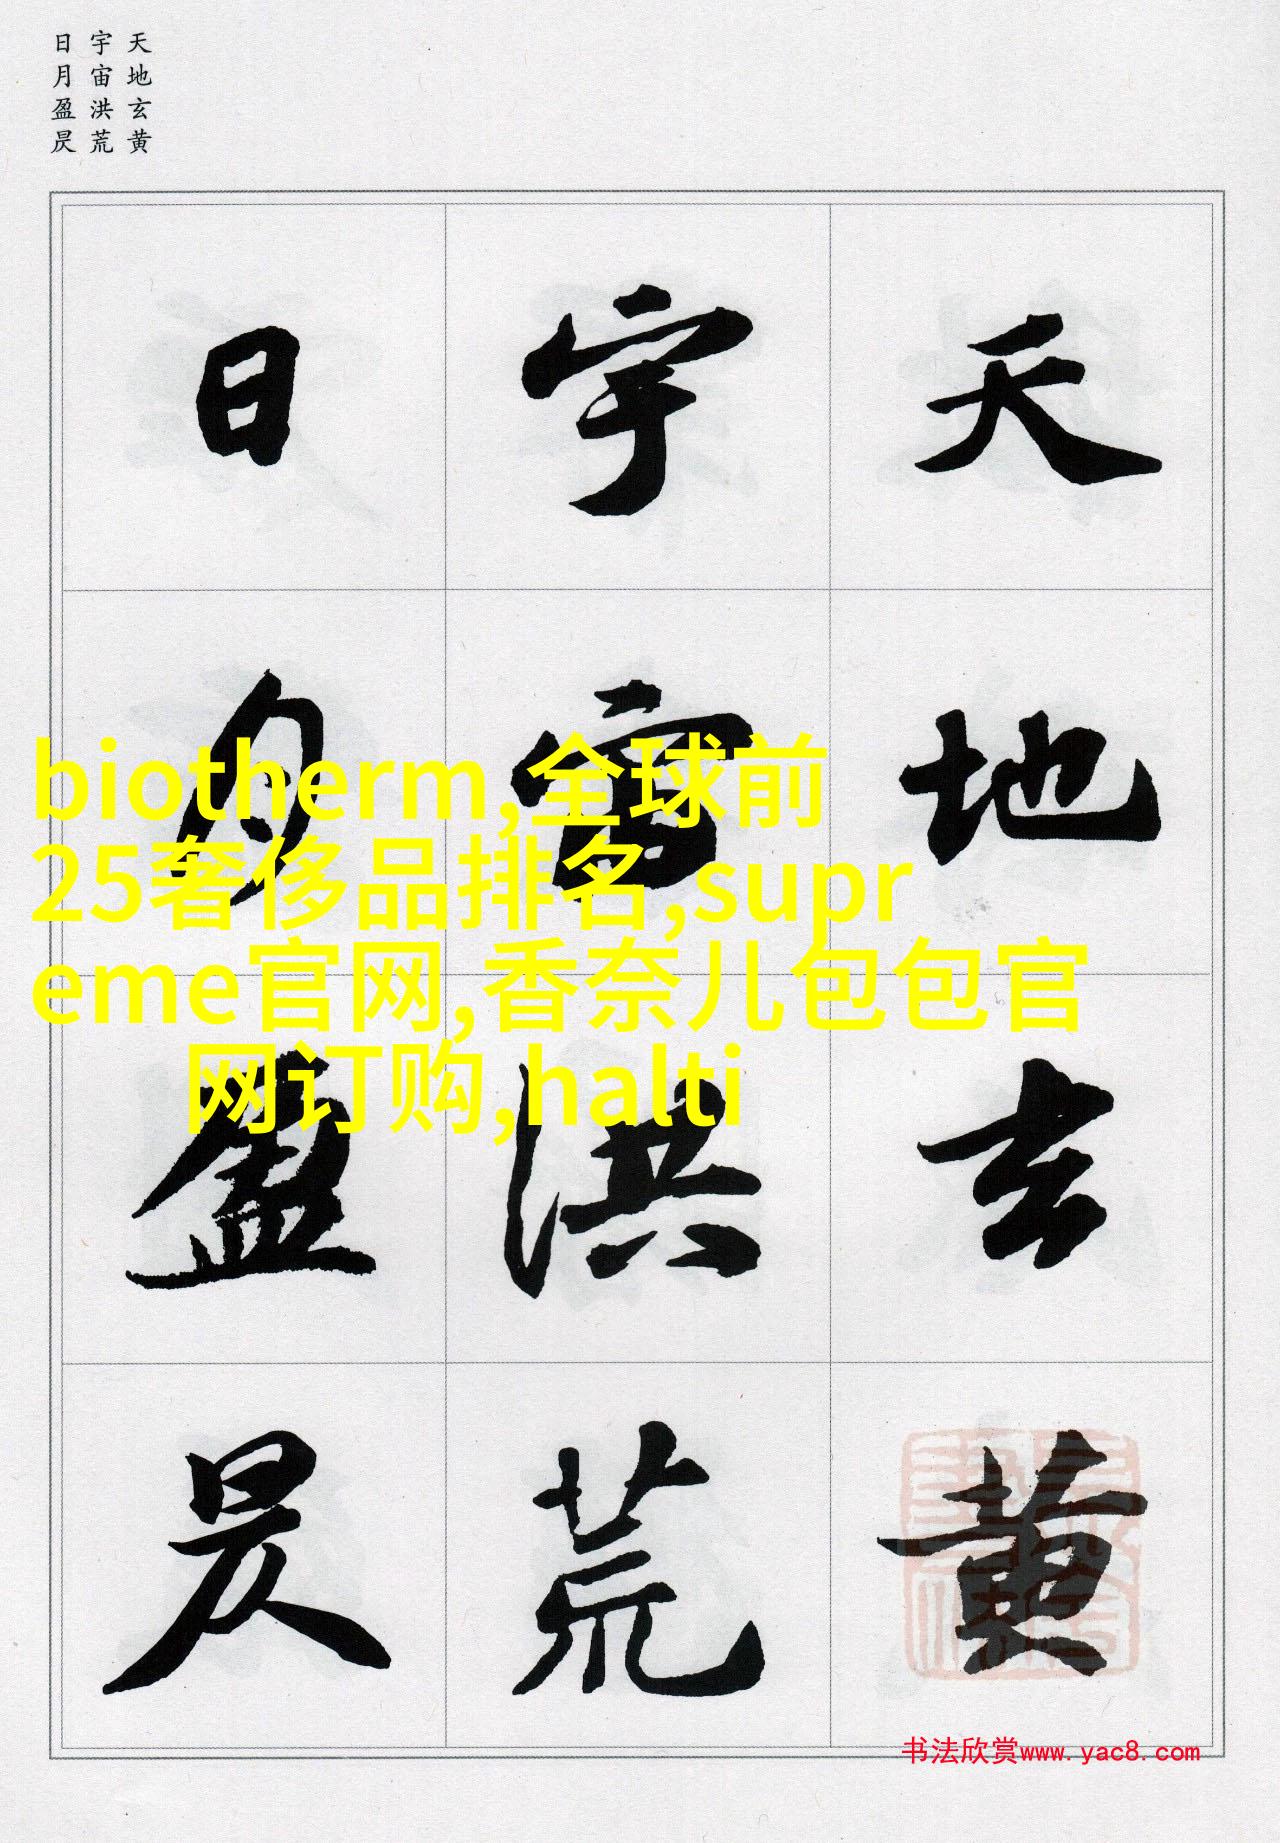 天地玄黄
宇宙洪荒
日月盈昃
天地玄黄
宇宙洪荒
日月盈昃
biotherm,全球前
25奢侈品排名,supr
eme官网,香奈儿包包官
网订购,halti
书法欣赏www.yac8.com